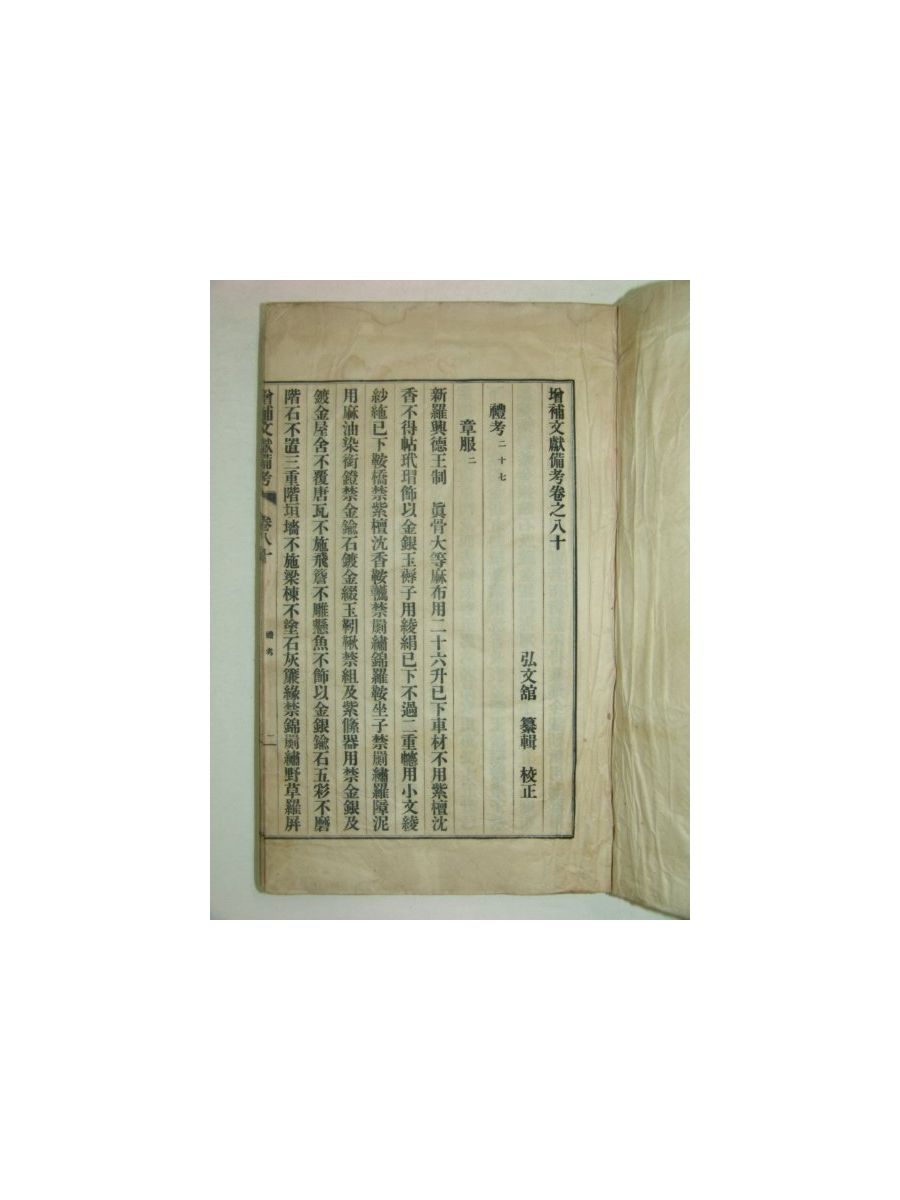 增補文獻備考卷之八十
弘文舘 纂輯 校正
禮考二十七
章服二
新羅興德王制 眞骨大等麻布用二十六升已下車材不用紫檀沈
香不得帖玳瑁飾以金銀玉褥子用綾絹已下不過二重幰用小文綾
紗絁已下鞍橋禁紫檀沈香鞍韉禁罽繡錦羅鞍坐子禁罽繡羅障泥
用麻油染銜鐙禁金鍮石鍍金綴玉靷鞦禁組及紫絛器用禁金銀及
鍍金屋舍不覆唐瓦不施飛簷不雕懸魚不飾以金銀鍮石五彩不磨
階石不置三重階垣墻不施梁棟不塗石灰簾緣禁錦罽繡野草羅屛
增補文獻備考 卷八十 禮考